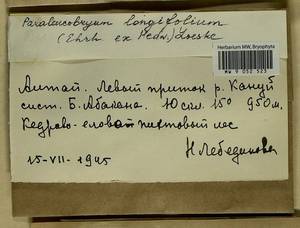 Paraleucobryum longifolium
(Ehrh. ex Hedw.) Loeske
Herbarium MW, Bryophyta
MW 9 052 523
Алтай. Левый приток р. Кануй
сист. Б. Абакана. Ю скл. 15° 950 м.
Кедрово-еловопихтовый лес
15-VII-1985
Н Лебединова